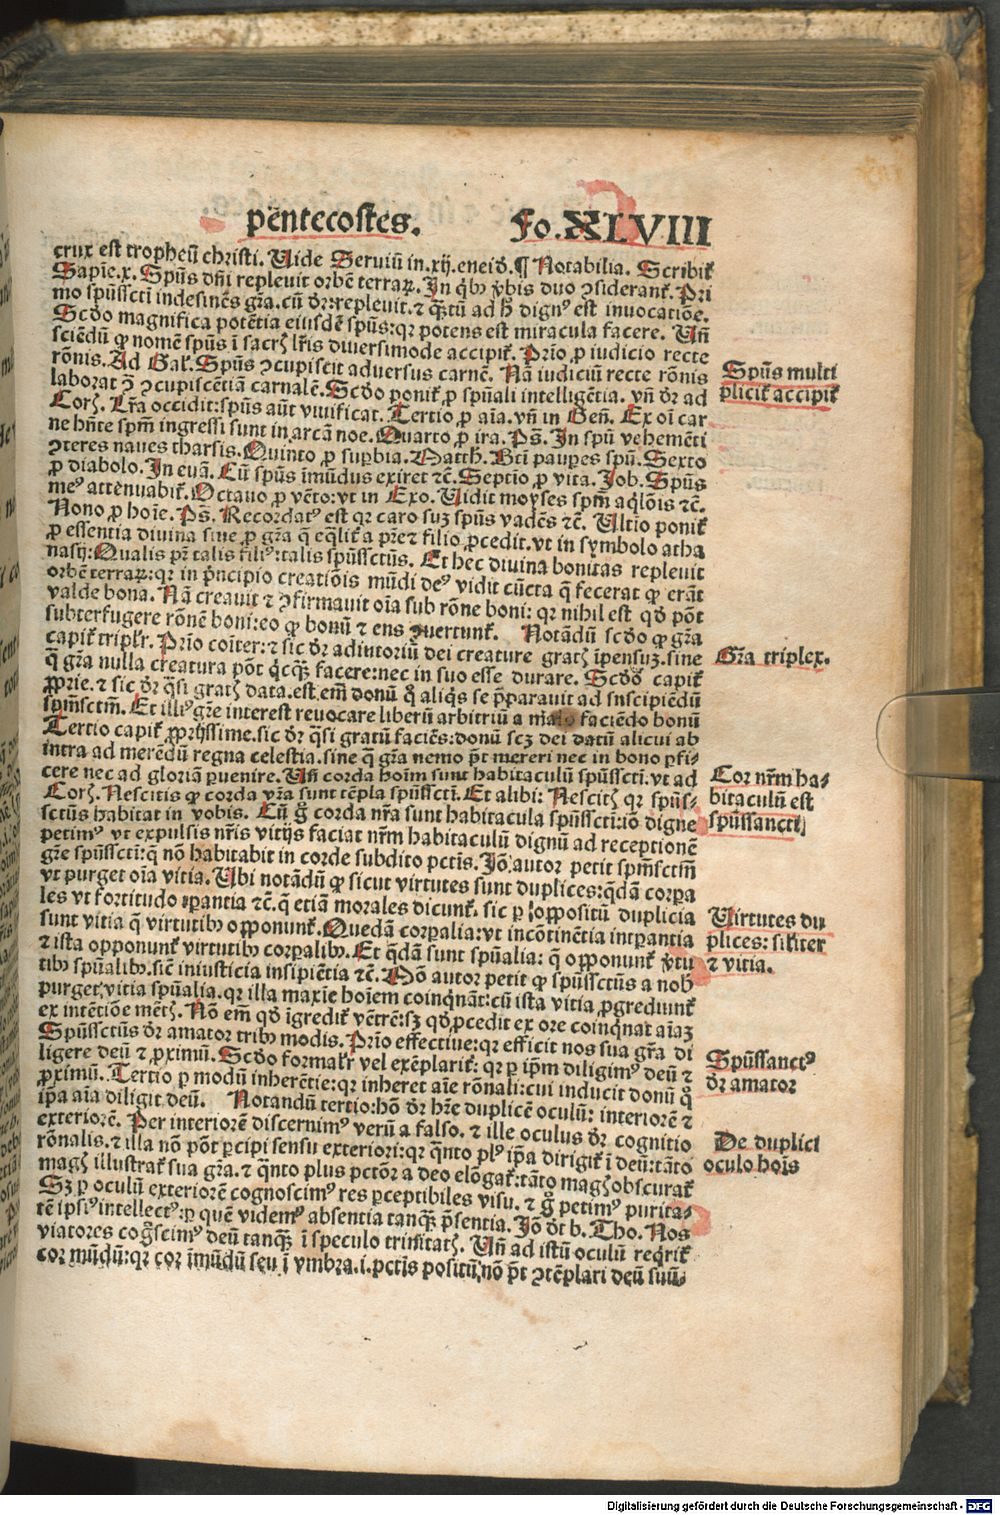 pēntecostes. Fo. XLVIII
crux est tropheū christi. Uide Seruiū in .xij. eneid. ¶ Notabilia. Scribit̄
Sapiē.x. Spūs dn̄i repleuit orbē terraꝝ. In qͥbꝰ v̄bis duo ꝯsiderant̄. Pri
mo spūssctī indesinēs gr̄a. cū dr̄: repleuit. ⁊ ad h̄ dignꝰ est inuocatiōe.
Scd̄o magnifica potētia eiusdē spūs: qꝛ potens est miracula facere. Un̄
sciēdū ꝙ nomē spūs ī sacrꝭ lr̄is diuersimode accipit̄. Prīo ꝓ iudicio recte
rōnis. Ad Gal. Spūs ꝯcupiscit aduersus carnē. Nā iudiciū recte rōnis
laborat ꝯ̄ ꝯcupiscētiā carnalē. Scd̄o ponit̄ ꝓ spūali intelligētia. vn̄ dr̄ ad
Corꝭ. Lr̄a occidit: spūs aūt viuificat. Tertio ꝓ aīa. vn̄ in Gen̄. Ex oī car
ne hn̄te spm̄ ingressi sunt in arcā noe. Quarto ꝓ ira. Ps̄. In spū vehemēti
ꝯteres naues tharsis. Quinto ꝓ supbia. Matth̄. Bt̄i pauꝑes spū. Sexto
ꝓ diabolo. In euā. Cū spūs īmūdus exiret ⁊c̄. Septīo ꝓ vita. Job. Spūs
meꝰ attenuabit̄. Octauo ꝓ vēto: vt in Exo. Uidit moyses spm̄ aqlōis ⁊c̄.
Nono ꝓ hoīe. Ps̄. Recordatꝰ est qꝛ caro suꝫ spūs vadēs ⁊c̄. Ultīo ponit̄
ꝓ essentia diuina siue ꝓ gr̄a q̄ eqͣlit̄ a pr̄e ⁊ filio ꝓcedit. vt in symbolo atha
nasij: Qualis pr̄ talis filiꝰ: talis spūssctūs. Et hec diuina bonitas repleuit
orbē terraꝝ: qꝛ in pͥncipio creatiōis mūdi deꝰ vidit cūcta q̄ fecerat ꝙ erāt
valde bona. Nā creauit ⁊ ꝯfirmauit oīa sub rōne boni: qꝛ nihil est qd̄ pōt
subterfugere rōnē boni: eo ꝙ bonū ⁊ ens ꝯuertunt̄. Notādū scd̄o ꝙ gr̄a
capit̄ triplr̄. Prīo cōiter: ⁊ sic dr̄ adiutoriū dei creature gratꝭ īpensuꝫ. sine
q̄ gr̄a nulla creatura pōt qͥcqͣꝫ facere: nec in suo esse durare. Scd̄o capit̄
ꝓprie. ⁊ sic dr̄ qͣsi gratꝭ data. est em̄ donū qͦ aliqͥs se p̄parauit ad suscipiēdū
spm̄sctm̄. Et illiꝰ gr̄e interest reuocare liberū arbitriū a malo faciēdo bonū
Tertio capit̄ ꝓprijssime. sic dr̄ qͣsi gratū faciēs: donū scꝫ dei datū alicui ab
intra ad merēdū regna celestia. sine q̄ gr̄a nemo p̄t mereri nec in bono ꝓfi-
cere nec ad gloriā ꝑuenire. Un̄ corda hoīm sunt habitaculū spūssctī. vt ad
Corꝭ. Nescitis ꝙ corda vr̄a sunt tēpla spūssctī. Et alibi: Nescitꝭ qꝛ spūs-
sctūs habitat in vobis. Cū gͦ corda nr̄a sunt habitacula spūssctī: iō digne
petimꝰ vt expulsis nr̄is vitijs faciat nr̄m habitaculū dignū ad receptionē
gr̄e spūssctī: q̄ nō habitabit in corde subdito pctīs. Jō autor petit spm̄sctm̄
vt purget oīa vitia. Ubi notādū ꝙ sicut virtutes sunt duplices: qͣdā corꝑa
les vt fortitudo ⁊c̄. q̄ etiā morales dicunt̄. sic ꝑ oppositū duplicia
sunt vitia q̄ virtutibꝰ opponunt̄. Quedā corꝑalia: vt incōtinētia intꝑantia
⁊ ista opponunt̄ virtutibꝰ corꝑalibꝰ. Et qͣdā sunt spūalia: q̄ opponunt̄ v̄tu
tibꝰ spūalibꝰ. sic̄ iniusticia insipiētia ⁊c̄. Mō autor petit ꝙ spūssctūs a nobꝭ
purget vitia spūalia. qꝛ illa maxīe hoīem coinqͥnāt: cū ista vitia ꝓgrediunt̄
ex intētiōe mētꝭ. Nō em̄ qd̄ īgredit̄ vētrē: sꝫ qd̄ ꝓcedit ex ore coinqͥnat aīaꝫ
Spūssctūs dr̄ amator tribꝰ modis. Prīo effectiue: qꝛ efficit nos sua gr̄a di
ligere deū ⁊ ꝓximū. Scd̄o formalr̄ vel exēplarit̄: qꝛ ꝑ ip̄m diligimꝰ deū ⁊
ꝓximū. Tertio ꝑ modū inherētie: qꝛ inheret aīe rōnali: cui inducit donū qͦ
ip̄a aīa diligit deū. Notandū tertio: hō dr̄ hr̄e duplicē oculū: interiorē ⁊
exteriorē. Per interiorē discernimꝰ verū a falso. ⁊ ille oculus dr̄ cognitio
rōnalis. ⁊ illa nō pōt ꝑcipi sensu exteriori: qꝛ qͣnto plꝰ ip̄a dirigit̄ ī deū: tāto
magꝭ illustrat̄ sua gr̄a. ⁊ qͣnto plus pctōr a deo elōgat̄: tāto magꝭ obscurat̄
Sꝫ ꝑ oculū exteriorē cognoscimꝰ res ꝑceptibiles visu. ⁊ gͦ petimꝰ purita-
tē ipsiꝰ intellectꝰ: ꝑ quē videmꝰ absentia tanqͣꝫ p̄sentia. Jō dt̄ b. Tho. Nos
viatores cogͦscimꝰ deū tanqͣꝫ ī speculo trinitatꝭ. Un̄ ad istū oculū reqͥrit̄
cor mūdū: qꝛ cor īmūdū seu ī vmbra .i. pctīs positū nō p̄t ꝯtēplari deū suū-
Spūs multi
plicit̄ accipit̄
Gr̄a triplex.
Cor nr̄m ha-
bitaculū est
spūssancti
Uirtutes du
plices: silit̄er
⁊ vitia.
Spūssanctꝰ
dr̄ amator
De duplici
oculo hoīs
Digitalisierung gefördert durch die Deutsche Forschungsgemeinschaft - DFG